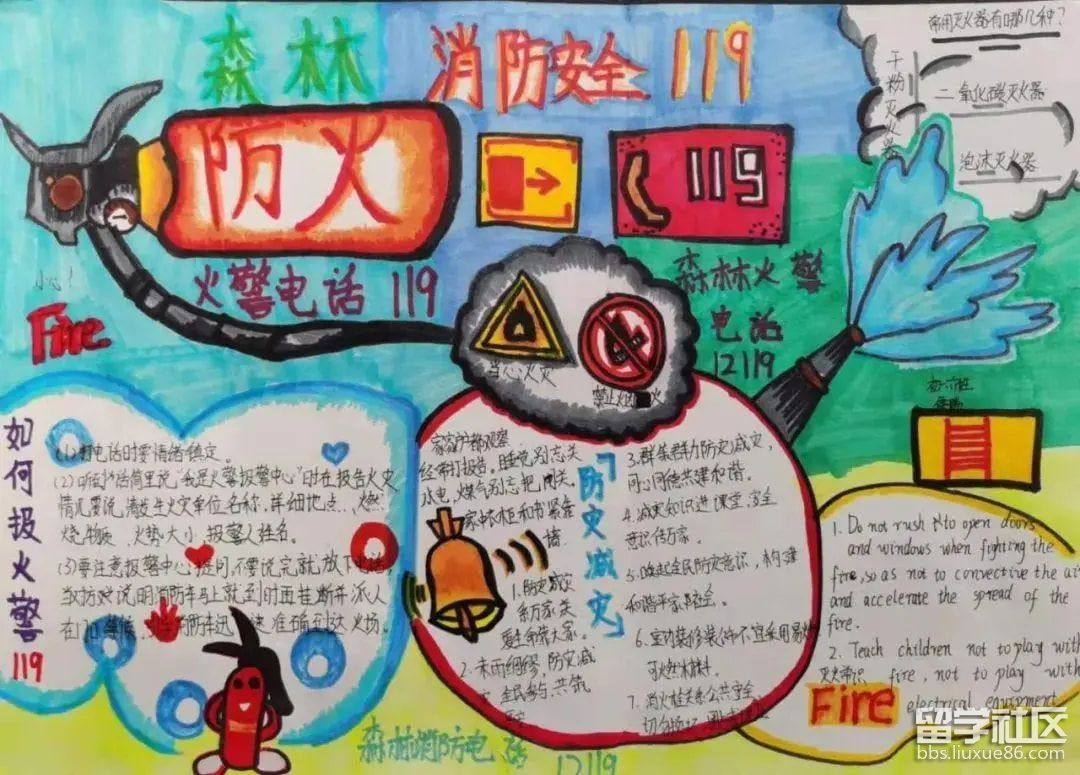 森林 消防安全119
常用灭火器有哪几种?
干粉灭火器
二氧化碳灭火器
泡沫灭火器
防火
119
火警电话119
森林火警
电话
12119
小心!
Fire
当心火灾
禁止烟火
如何报火警119
(1)打电话时要情绪镇定。
(2)听到话筒里说“我是火警报警中心”时在报告火灾
情况要说清发生火灾单位名称,详细地点,燃
烧物质,火势大小,报警人姓名。
(3)要注意报警中心提问,不要说完就放下电话,
当对方说明消防车马上就到时面挂断并派人
在门口等候
准确到达火场。
防灾减灾
经常打报告,睡觉别忘关
水电,煤气别忘把闸关
1.防灾减灾
系万家,关
爱生命强大家。
2.未雨绸缪,防灾减
灾,全民参与,共筑
3.群策群力防灾减灾,
同心同德共建和谐。
4.减灾知识进课堂,安全
意识传万家。
5.唤起全民防灾意识,构建
和谐平安社会。
6.室内装修装饰不宜采用易燃
可燃材料。
7.消火栓关系公共安全,
1. Do not rush to open doors
and windows when fighting the
fire, so as not to convective the air
and accelerate the spread of the
fire.
2. Teach children not to play with
fire, not to play with
electrical equipment
灭火常识
Fire
森林消防电话
12119
留学社区
bbs.liuxue86.com